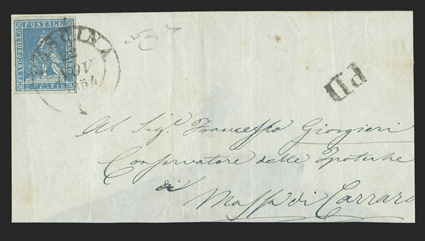 FRANCOBOLLO POSTALE TOSCANO
NOV
1854
PD
Al Sig.r Francesco Giorgieri
Conservatore delle Ipoteche
di
Massa di Carrara